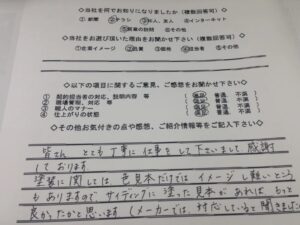 ◇当社を何でお知りになりましたか（複数回答可）
① 新聞 ②チラシ ③知人、友人 ④インターネット
⑤飛込の訪問 ⑥その他
◇当社をお選び頂いた理由をお聞かせ下さい（複数回答可）
①企業イメージ ②品質 ③価格 ④担当者 ⑤その他
◇以下の項目に関するご意見、ご感想をお聞かせ下さい◇
1 契約担当者の対応、説明内容 等 （満足 普通 不満）
2 現場管理、対応 等 （満足 普通 不満）
3 職人のマナー （満足 普通 不満）
4 仕上がりの状態 （満足 普通 不満）
◇その他お気付きの点や感想、ご紹介情報等をご記入下さい◇
皆さん とても丁寧に仕事をして下さいまして感謝
しております。
塗装に関しては 色見本だけではイメージし難いところ
もありますので サイディングに塗った見本があれば もっと
良かったかと思います（メーカーでは、対応していると聞きました